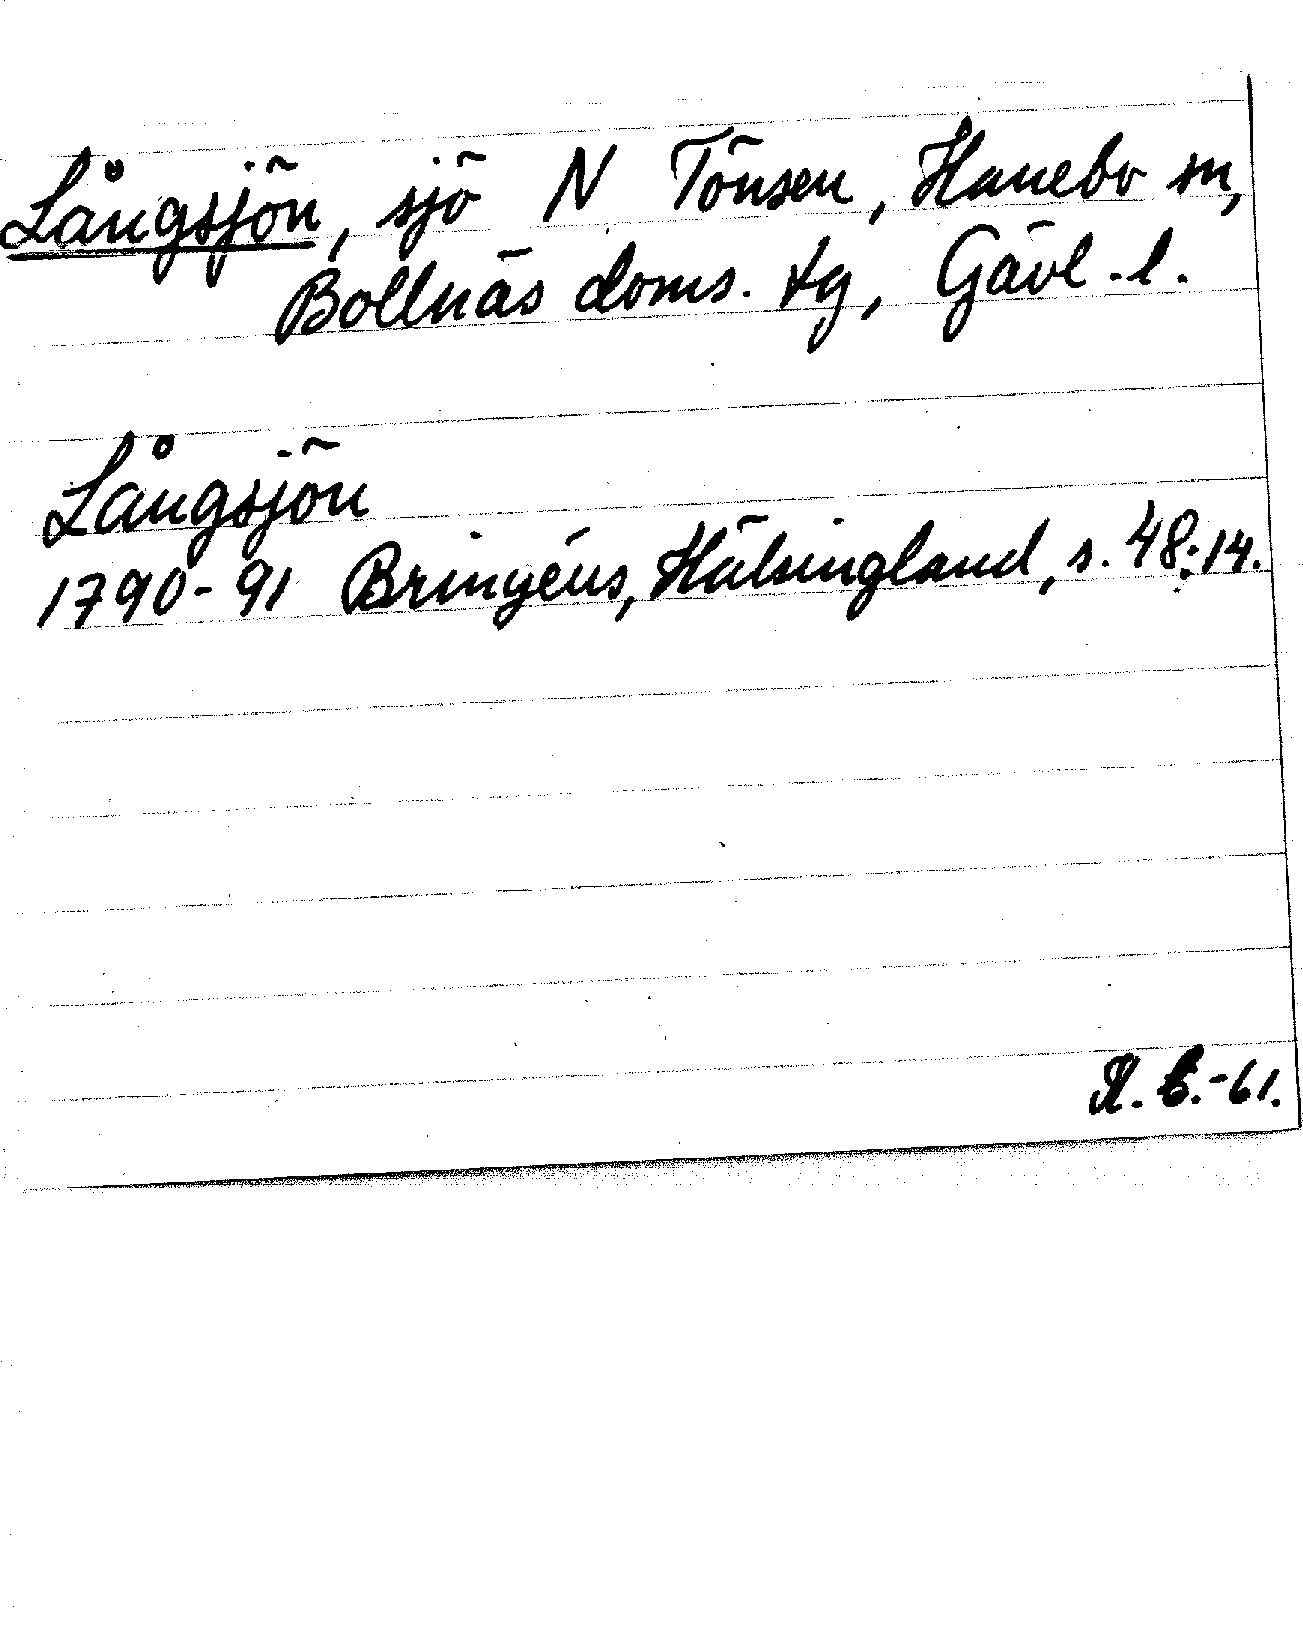 Långsjön, sjö N Tönsen, Hanebo sn,
Bollnäs doms. tg, Gävl. l.
Långsjön
1790-91 Bringéus, Hälsingland, s. 48:14.
R. B.-61.